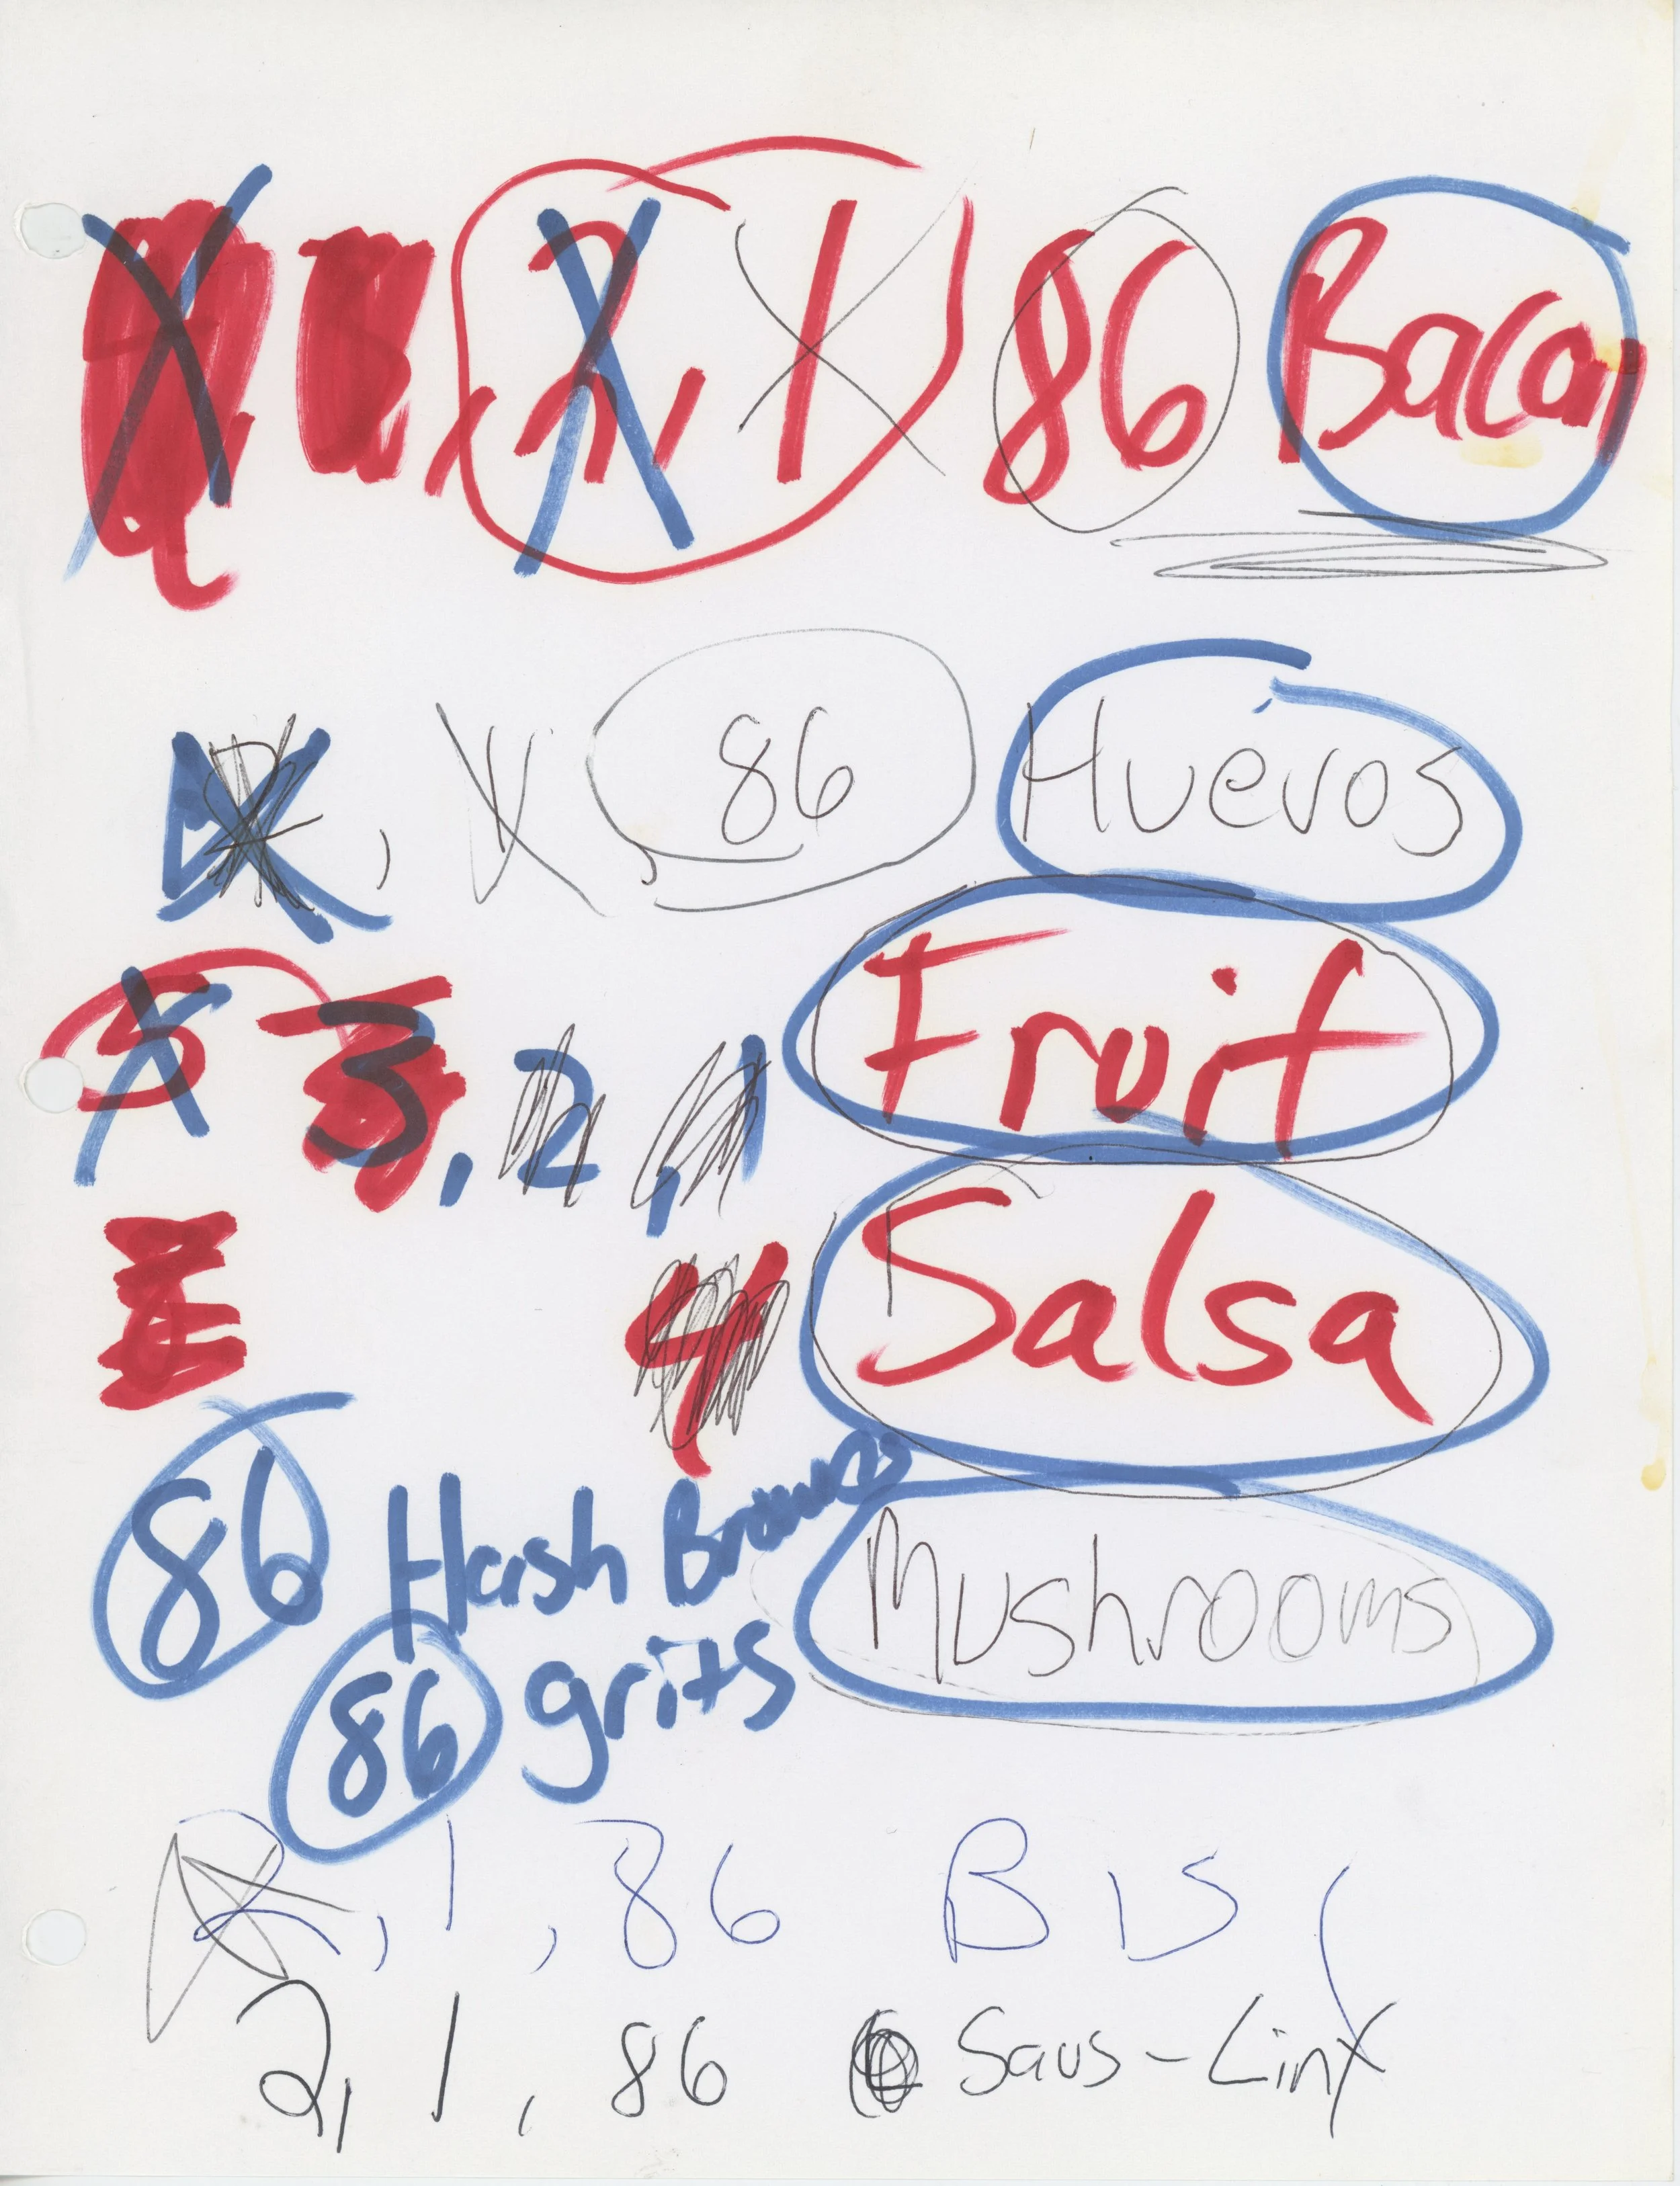 2, 1 86 Bacon
, 86 Huevos
5 3, 2, 1 Fruit
4 Salsa
86 Hash Browns
Mushrooms
86 grits
2, 1, 86 Bis
2, 1, 86 Saus-Linx